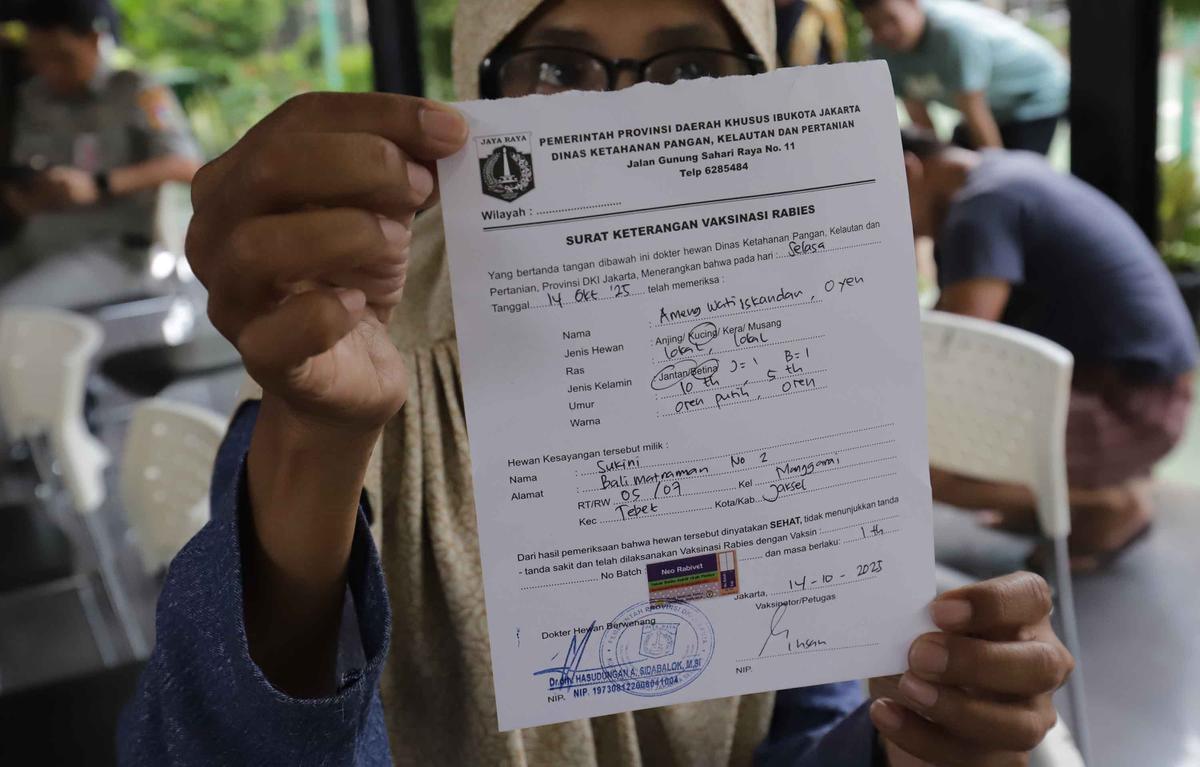 JAYA RAYA
PEMERINTAH PROVINSI DAERAH KHUSUS IBUKOTA JAKARTA
DINAS KETAHANAN PANGAN, KELAUTAN DAN PERTANIAN
Jalan Gunung Sahari Raya No. 11
Telp 6285484
Wilayah : ..........................
SURAT KETERANGAN VAKSINASI RABIES
Yang bertanda tangan dibawah ini dokter hewan Dinas Ketahanan Pangan, Kelautan dan
Pertanian, Provinsi DKI Jakarta, Menerangkan bahwa pada hari : Selasa
Tanggal 14 Okt '25 telah memeriksa :
Nama : Ameng Wati Iskandar, Oyen
Jenis Hewan : Anjing/ Kucing/ Kera/ Musang
Ras : lokal, lokal
Jenis Kelamin : Jantan/Betina J=1 B=1
Umur : 10 th, 5 th
Warna : oren putih, oren
Hewan Kesayangan tersebut milik :
Nama : Sukini
Alamat : Bali matraman No 2
RT/RW 05 /07 Kel Manggarai
Kec Tebet Kota/Kab. Jaksel
Dari hasil pemeriksaan bahwa hewan tersebut dinyatakan SEHAT, tidak menunjukkan tanda
- tanda sakit dan telah dilaksanakan Vaksinasi Rabies dengan Vaksin :
No Batch : Neo Rabivet dan masa berlaku: 1 th
Jakarta, 14-10-2025
Dokter Hewan Berwenang Vaksinator/Petugas
JAYA RAYA
Ihsan
Dr.drh/ HASUDUNGAN A. SIDABALOK, M.SI
NIP. NIP. 197308122008041004 NIP.